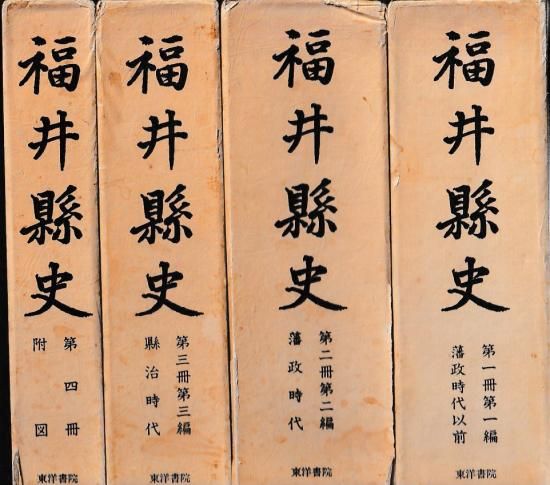 福井縣史
第一冊第一編
藩政時代以前
東洋書院
福井縣史
第二冊第二編
藩政時代
東洋書院
福井縣史
第三冊第三編
縣治時代
東洋書院
福井縣史
第四冊
附図
東洋書院